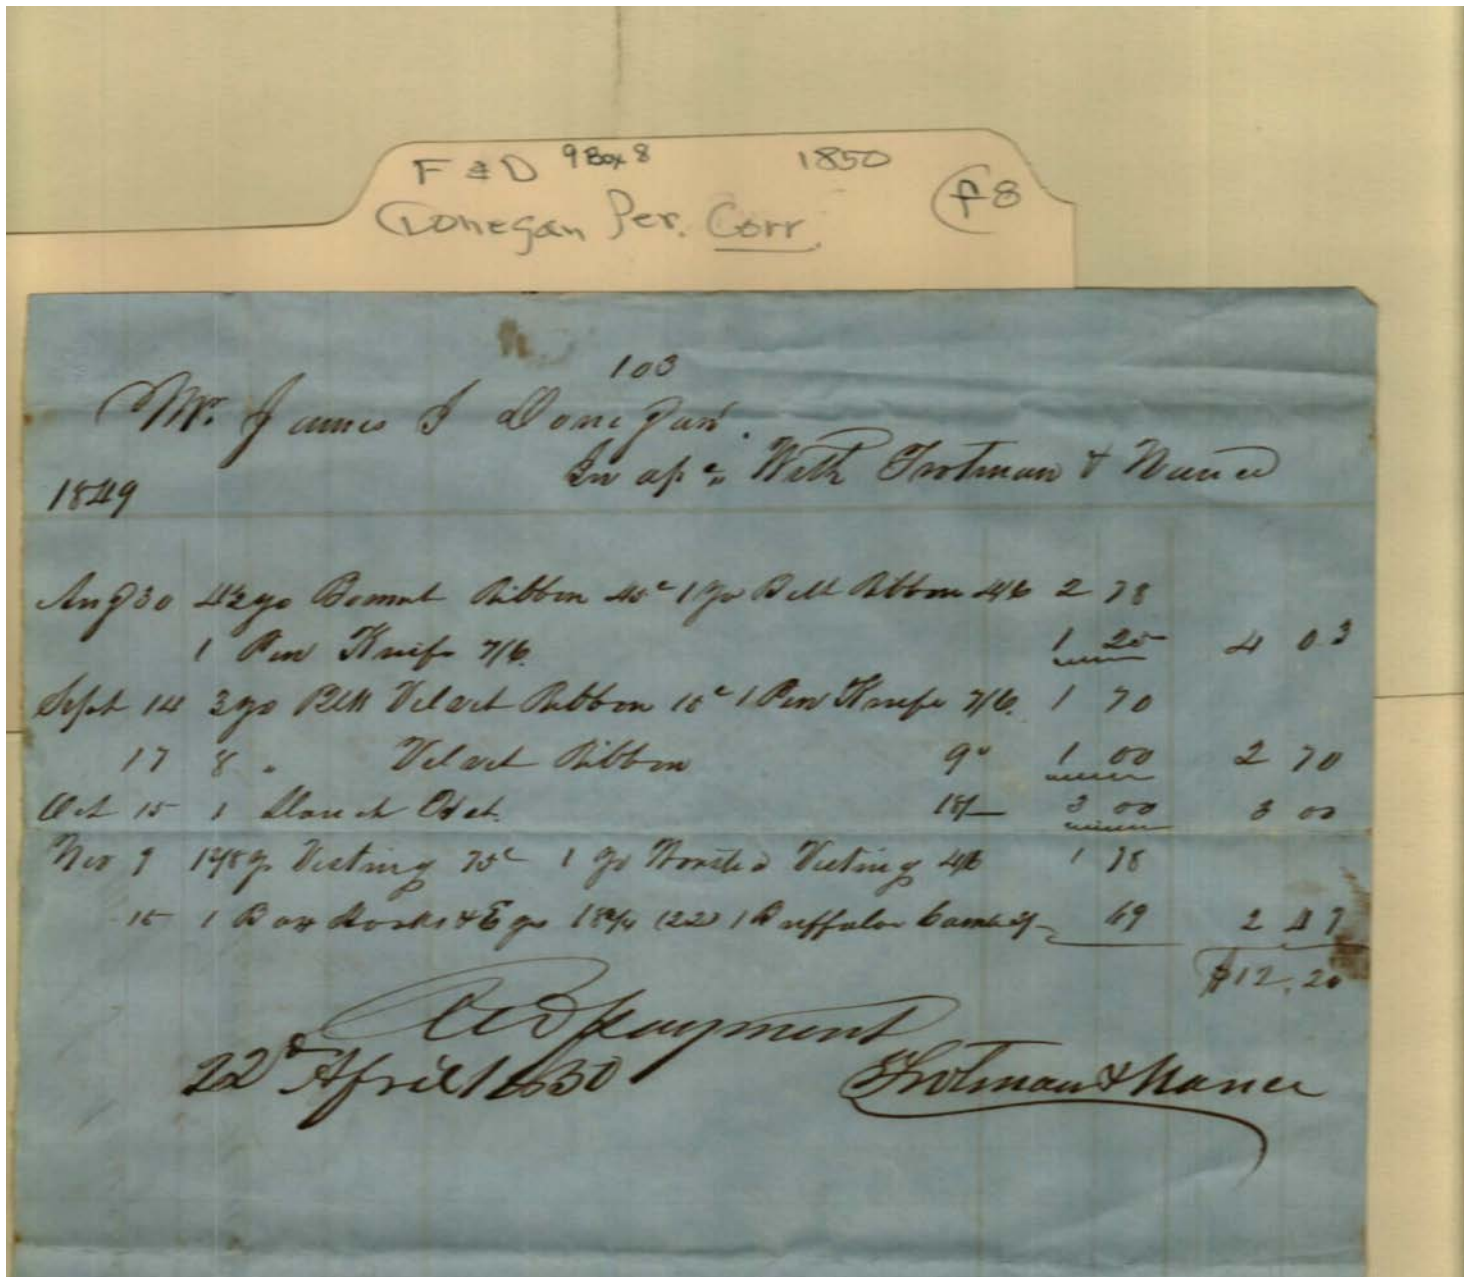 F & D 9 Box 8 1850
Donegan Per. Corr. f8
103
Mr. James J Donegan
In a/c With Trotman & Nance
1849
Aug 30 yds Bonnet Ribbon 1 yd Belt Ribbon 4/6 2 78
1 Pen Knife 7/6 1 25 4 03
Sept 14 3 yds Blk Velvet Ribbon 15c 1 Pen Knife 7/6 1 70
17 8 " Velvet Ribbon 1 00 2 70
Oct 15 1 Hat 18/- 3 00 3 00
Nov 9 yds Vesting 75c 1 yd Worsted Vesting 1 78
15 1 Box Hooks & Eyes 1 Buffalo Comb 69 2 47
$12.20
Recd payment
22d April 1850 Trotman & Nance